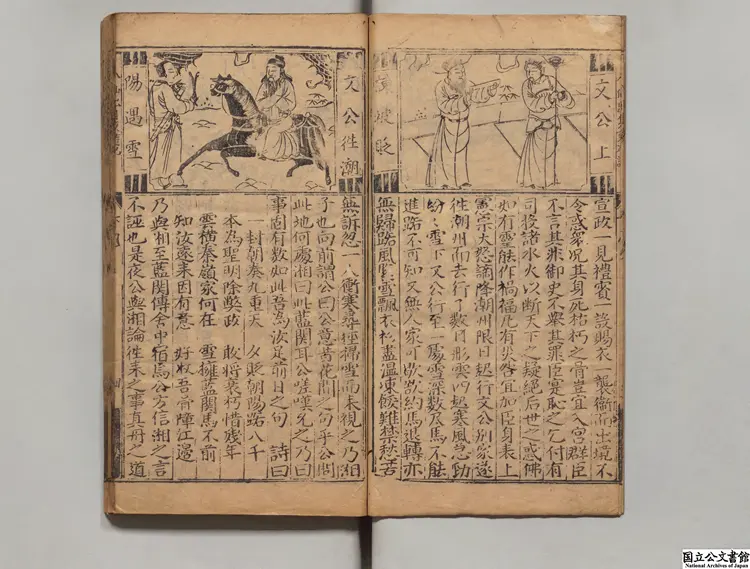 文公上
被貶
宣政一見禮賓一設賜衣一襲衛而出境不
令惑衆况其身死枯朽之骨豈宜入宮群臣
不言其非御史不舉其罪臣寔恥之乞付有
司投諸水火以断天下之疑絕后世之惑佛
如有靈能作禍福凢有災咎宜加臣身表上
憲宗大怒謫降潮州限日起行文公別家遂
徃潮州而去行了數日彤雲四起寒風急動
紛〻雪下文公行至一處雪深數尺馬不能
進路不可知又無人家可問欲馬退轉亦
無歸路風緊雪飄衣衫盡温凍餒難禁愁苦
文公徃潮
陽遇雪
無訴忽一人衝寒尋徑掃雪而来視之乃湘
子也向前謂公曰公意昔花間之句乎公問
此地何處湘曰此藍関也公嗟嘆久之乃曰
事固有数如此吾為汝足前日之句 詩曰
一封朝奏九重天 夕貶朝陽路八千
本為聖明除弊政 敢將衰朽惜殘年
雲横秦嶺家何在 雪擁藍関馬不前
知汝遠来因有意 好收吾骨障江邉
乃與相至藍関傳舍中宿焉公方信湘之言
不誣也是夜公與湘論徃来之事真丹之道
国立公文書館
National Archives of Japan